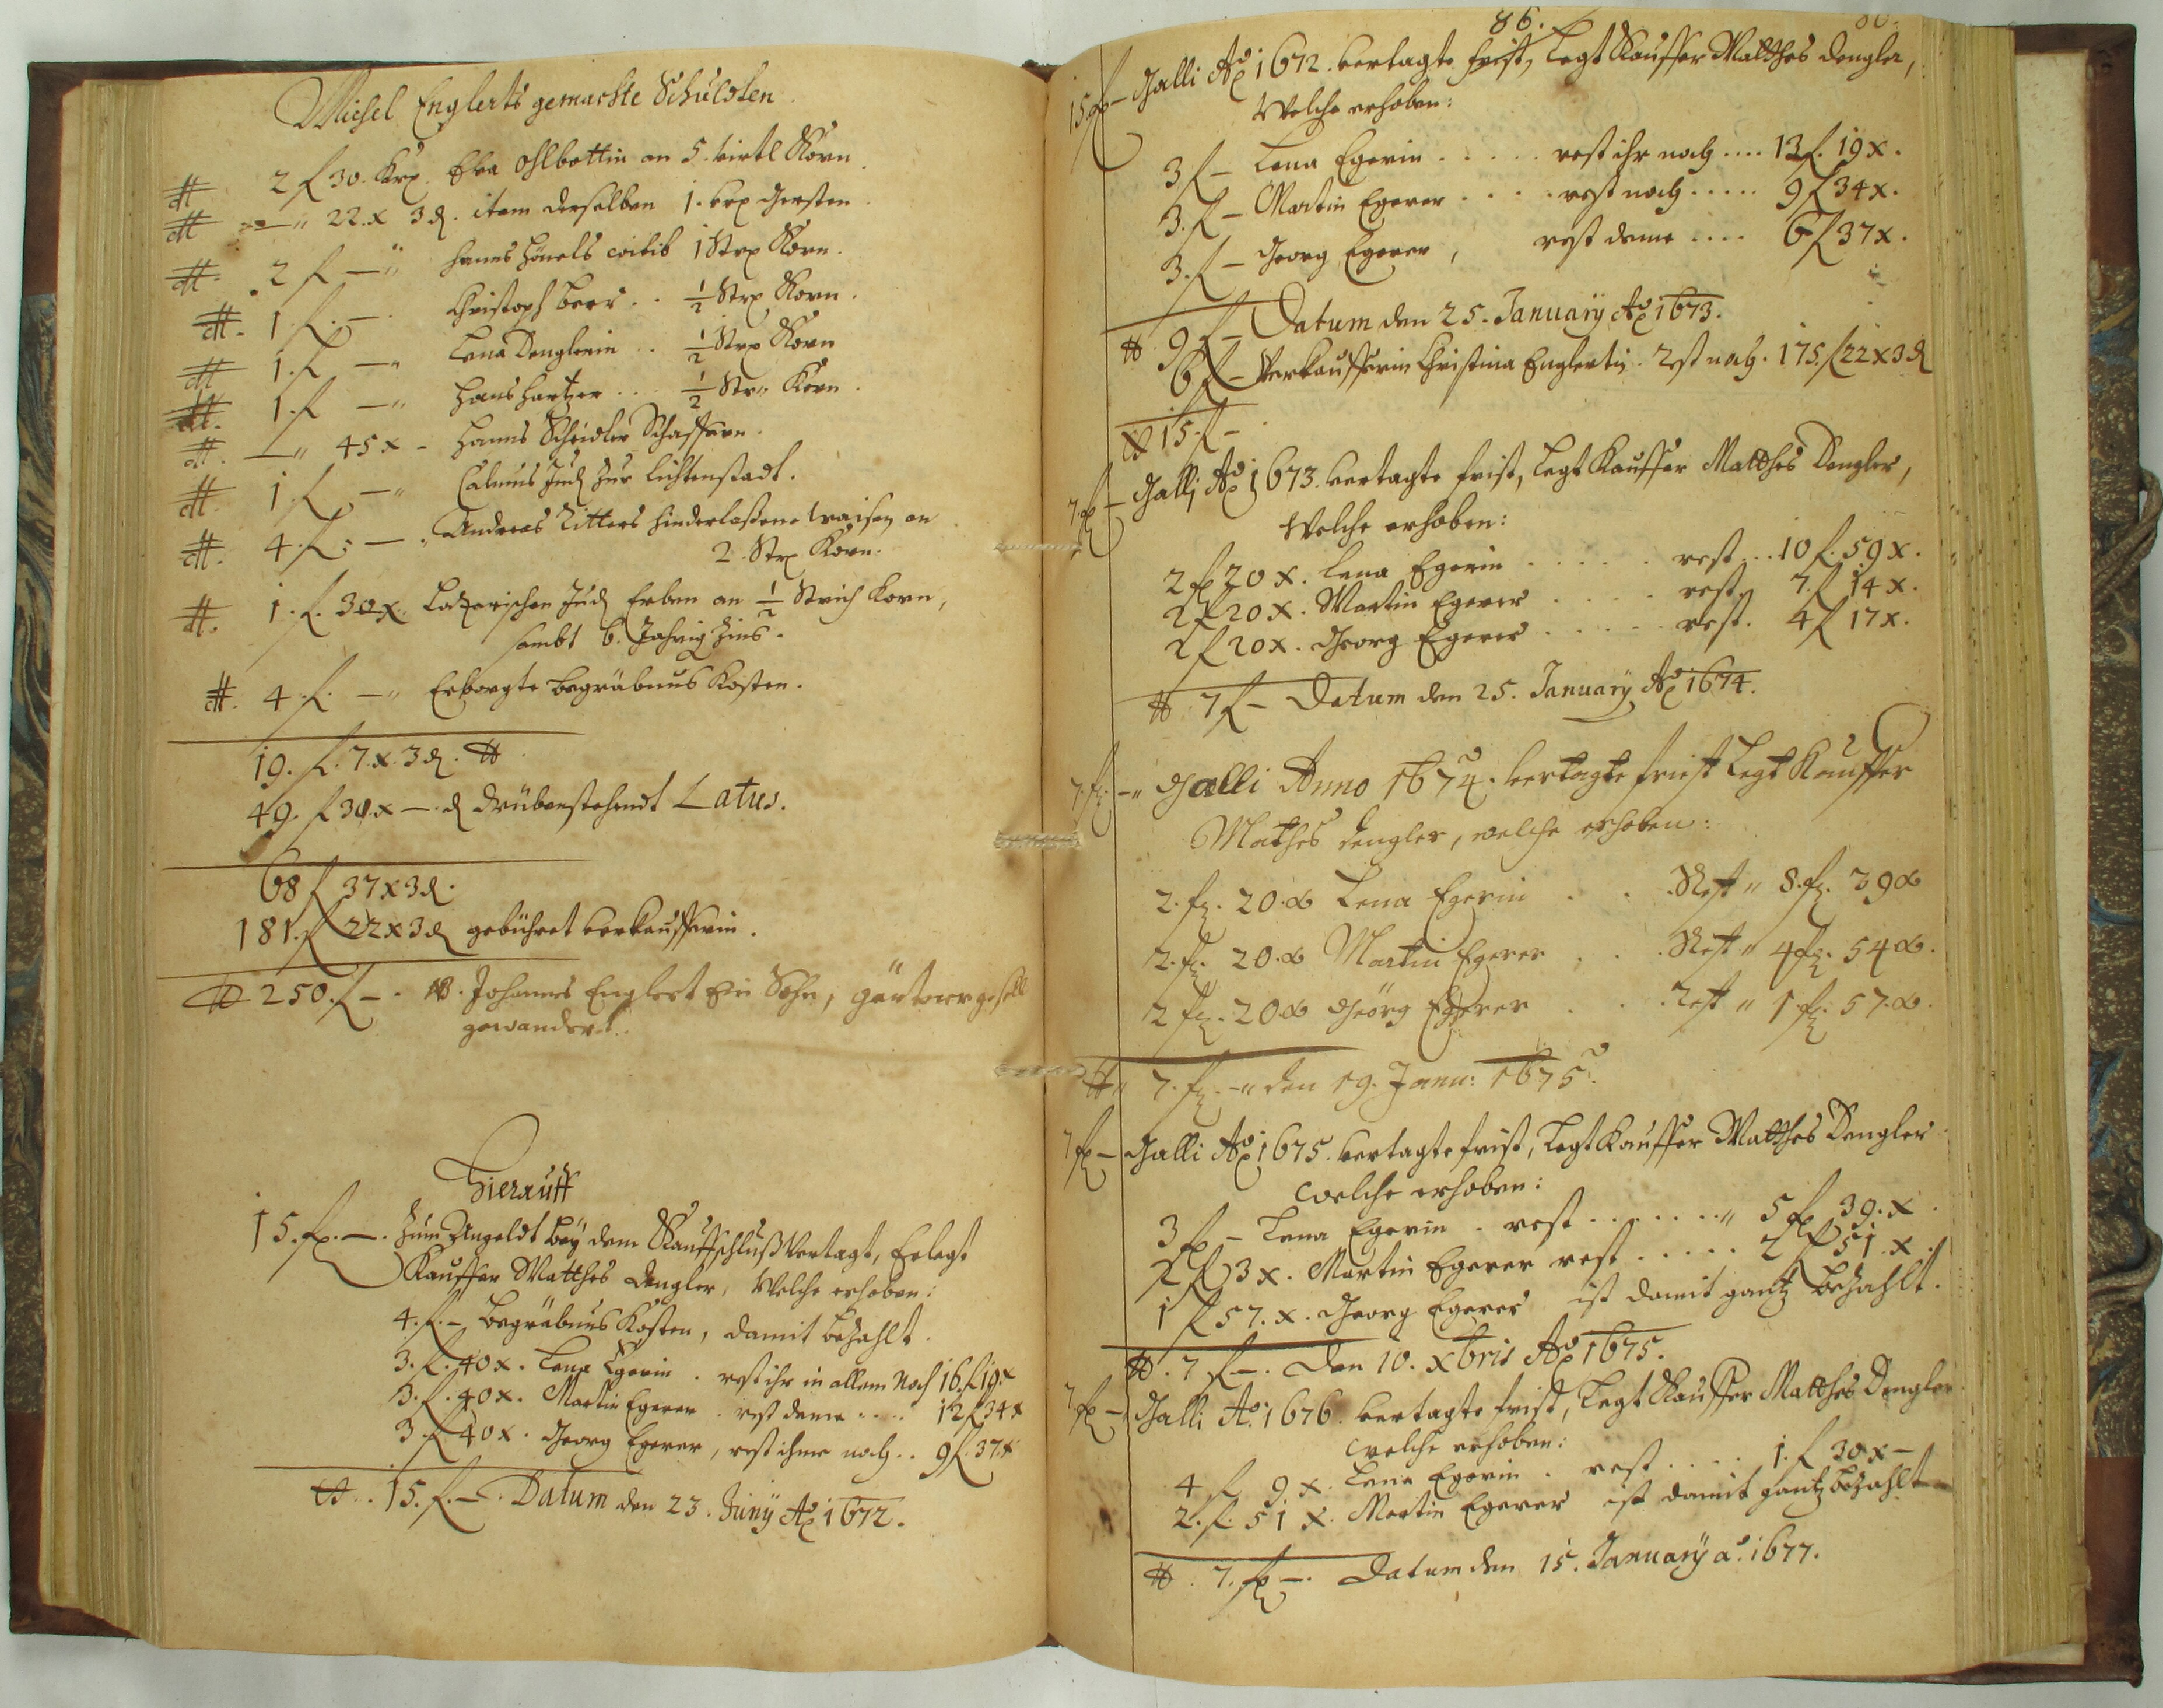 Michel Englerts gemachte Schulden
2 f 30. Krx. Eva Ohlbottin an 5. virtl Korn
— " 22. x 3 d. item derselben 1. krx Gersten
2 f — " Hanns Hönels weib 1 Strx Korn.
1. f. — Christoph Beer . . ½ Strx Korn.
1. f — " Lena Denglerin . . ½ Strx Korn
1. f — " Hans Hartzer . . ½ Str" Korn.
— " 45 x — Hanns Scheidler Schaffern.
1 f — " Calmus Jud zur Lichtenstadt.
4. f: — " Andreas Ritters hinderlaßene Waisen an
2 Strx Korn.
1. f. 30 x Latzarischen Jud Erben an ½ Strich Korn,
sambt 6. Jahrig Zins.
4. f. — " Erborgte Begräbnus Kosten.
19. f. 7. x. 3 d.
49. f 30. x —. d drübenstehendt Latus.
68 f 37 x 3 d.
181. f 22 x 3 d gebühret verkaufferin.
250. f —. NB. Johannes Englert Ein Sohn,
gewandert.
Hierauff
15. fx. —. Zum Angeldt bey dem Kauffschluß Vertagt, Erlegt
Kauffer Matthes Dengler, Welche erhoben:
4. f. — Begräbnus Kosten, damit bezahlt.
3. f. 40 x. Lena Egerin . rest ihr in allem noch 16. f 19. x
3. f. 40 x. Martin Egerer . rest deme . . . . 12 f 34 x
3. f 40 x. Georg Egerer, rest ihme noch . . 9 f. 37. x
15. f. —. Datum den 23. Juny Ao 1672.
86.
15 f — Galli Ao 1672. vertagte frist, Legt Kauffer Matthes Dengler,
Welche erhoben:
3 f — Lena Egerin . . . . . rest ihr noch . . . . 13 f. 19 x.
3. f — Martin Egerer . . . . rest noch . . . . . 9 f 34 x.
3. f — Georg Egerer, rest deme . . . . 6 f 37 x.
9 f — Datum den 25. January Ao 1673.
6 f — Verkaufferin Christina Englertin. Rest noch. 175. f 22 x 3 d
15. f —
7. f — Galli Ao 1673. vertagte frist, Legt Kauffer Matthes Dengler,
Welche erhoben:
2 f 20 x. Lena Egerin . . . . . rest . . 10 f. 59 x.
2 f 20 x. Martin Egerer . . . . rest. 7. f 14 x.
2 f 20 x. Georg Egerer . . . . . rest. 4 f 17 x.
7 f — Datum den 25. January Ao 1674.
7. fl. — " Galli Anno 1674. vertagte friest Legt Kauffer
Mathes Dengler, welche erhoben:
2. fl. 20. x Lena Egerin . . . Rest " 8. fl. 39 x
2. fl. 20. x Martin Egerer . . . Rest " 4 fl. 54 x.
2 fl. 20 x Geörg Egerer . . . Rest " 1. fl. 57. x.
7. fl. — " den 19. Janu: 1675.
7 fx — Galli Ao 1675. vertagte frist, Legt Kauffer Matthes Dengler
welche erhoben:
3 fx — Lena Egerin . rest . . . . . . . " 5 fx 39. x.
2 f 3 x. Martin Egerer rest . . . . . 2 f 51. x.
1 f 57. x. Georg Egerer ist damit gantz bezahlt.
7 f —. den 10. Xbris Ao 1675.
7 fx — Galli Ao 1676. vertagte frist, Legt Kauffer Matthes Dengler
welche erhoben:
4 f 9 x. Lena Egerin . rest . . . . 1. f 30 x —
2. f. 51 x. Martin Egerer ist damit gantz bezahlt
7. fx —. Datum den 15. January ao. 1677.